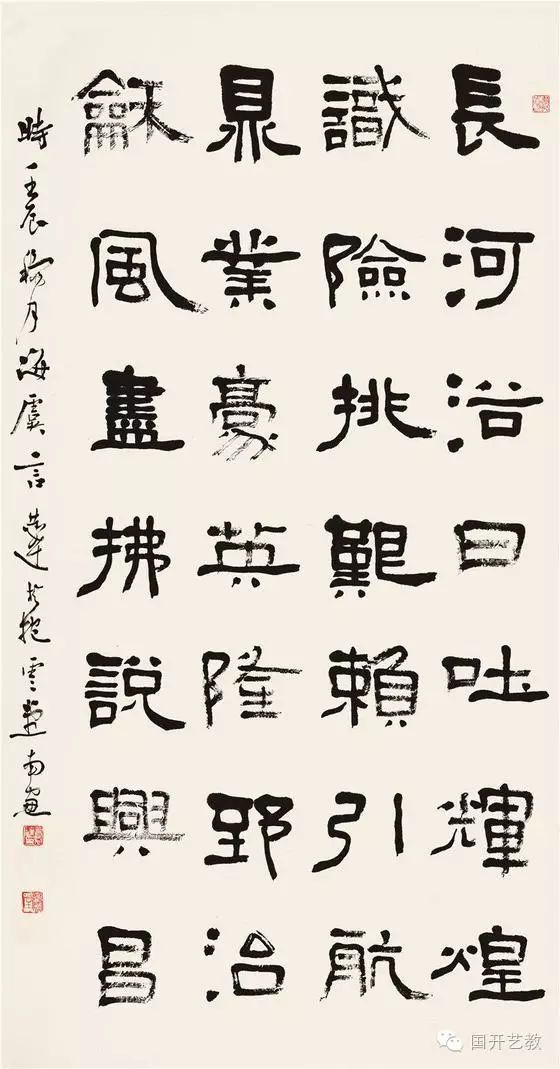 長河浴日吐輝煌
識險挑艱賴引航
鼎業豪英隆郅治
龢風盡拂說興昌
時壬辰月海虞言恭達於抱雲堂南窗
国开艺教